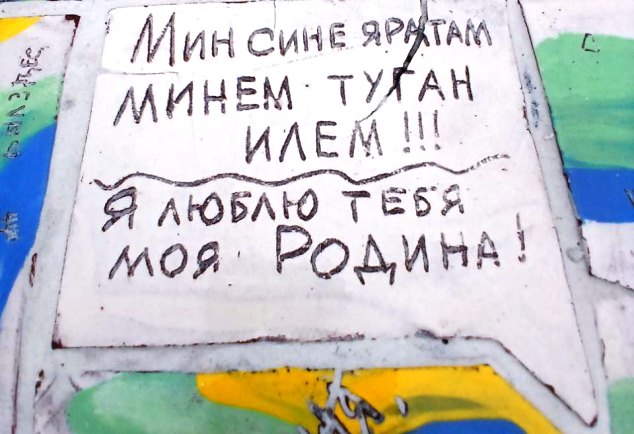 Мин сине яратам
минем туган
илем!!!
Я люблю тебя
моя Родина!